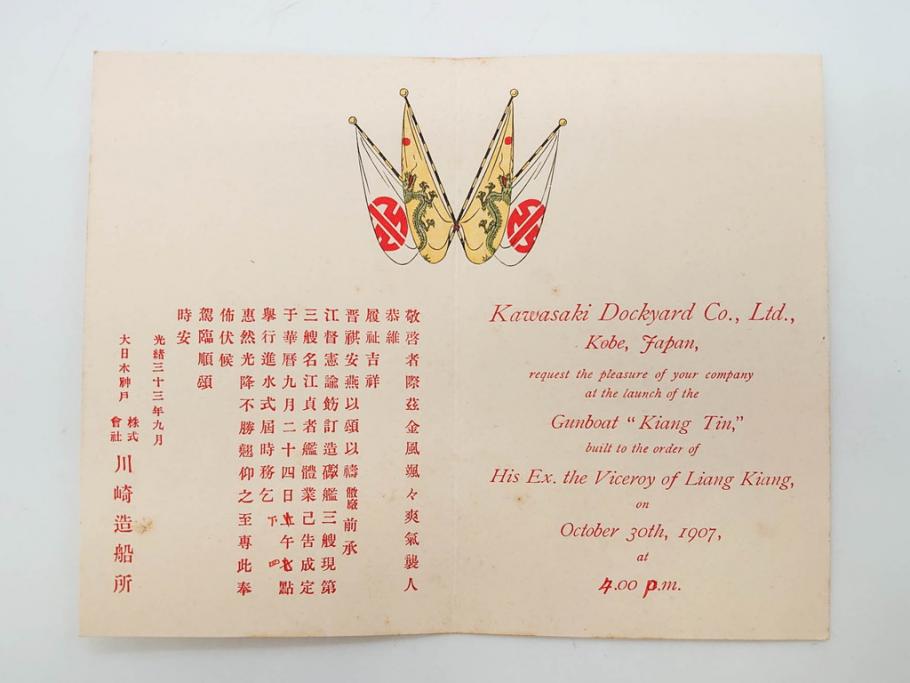 敬啓者際茲金風颯々爽氣襲人
恭維
履祉吉祥
晋祺安燕以頌以禱敝廠前承
江督憲諭飭訂造礮艦三艘現第
三艘名江貞者艦體業已告成定
于華曆九月二十四日下午四點
舉行進水式屆時務乞
惠然光降不勝翹仰之至專此奉
佈伏候
駕臨順頌
時安
光緒三十三年九月
大日本神戶 株式會社 川崎造船所
Kawasaki Dockyard Co., Ltd.,
Kobe, Japan,
request the pleasure of your company
at the launch of the
Gunboat "Kiang Tin,"
built to the order of
His Ex. the Viceroy of Liang Kiang,
on
October 30th, 1907,
at
4.00 p.m.